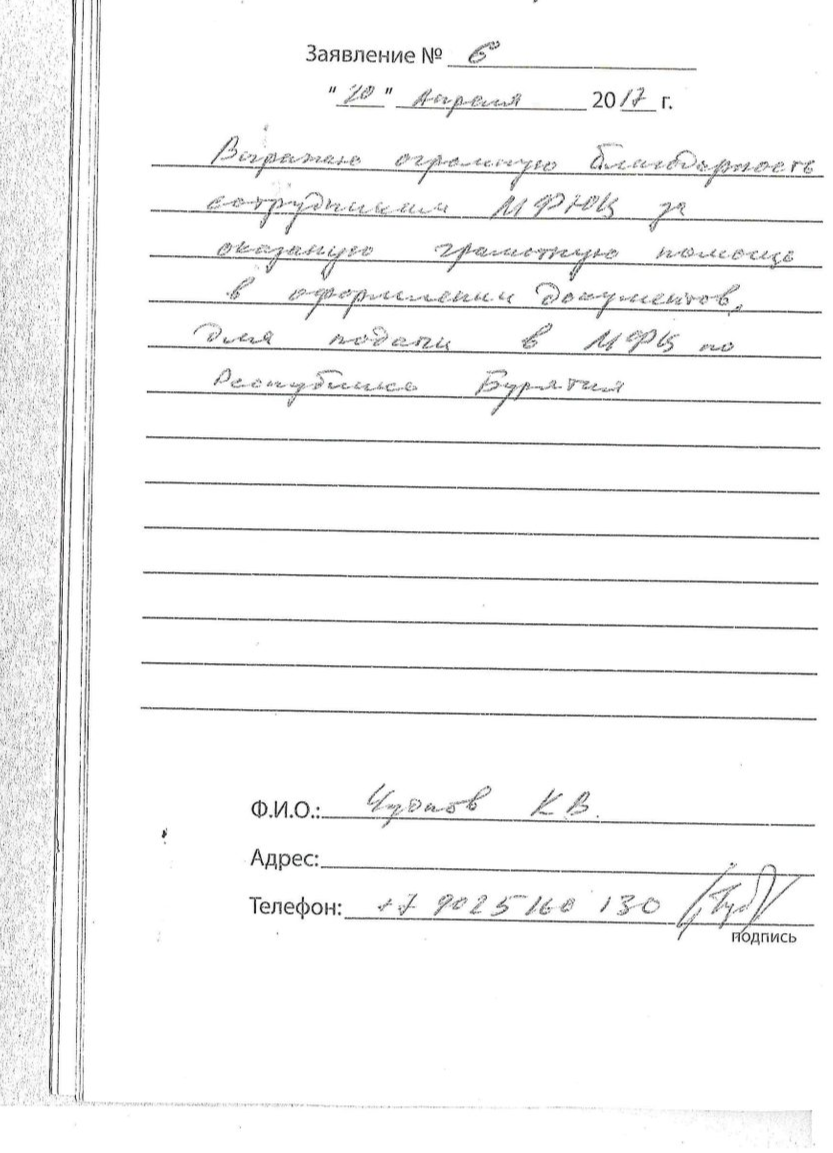 Заявление № 6
"20" Апреля 2017 г.
Выражаю огромную благодарность
сотрудникам МФЮЦ за
оказаную грамотную помощь
в оформлении документов,
для подачи в МФЦ по
Республике Бурятия
Ф.И.О.: К В.
Адрес:
Телефон: +7 9025 160 130
подпись